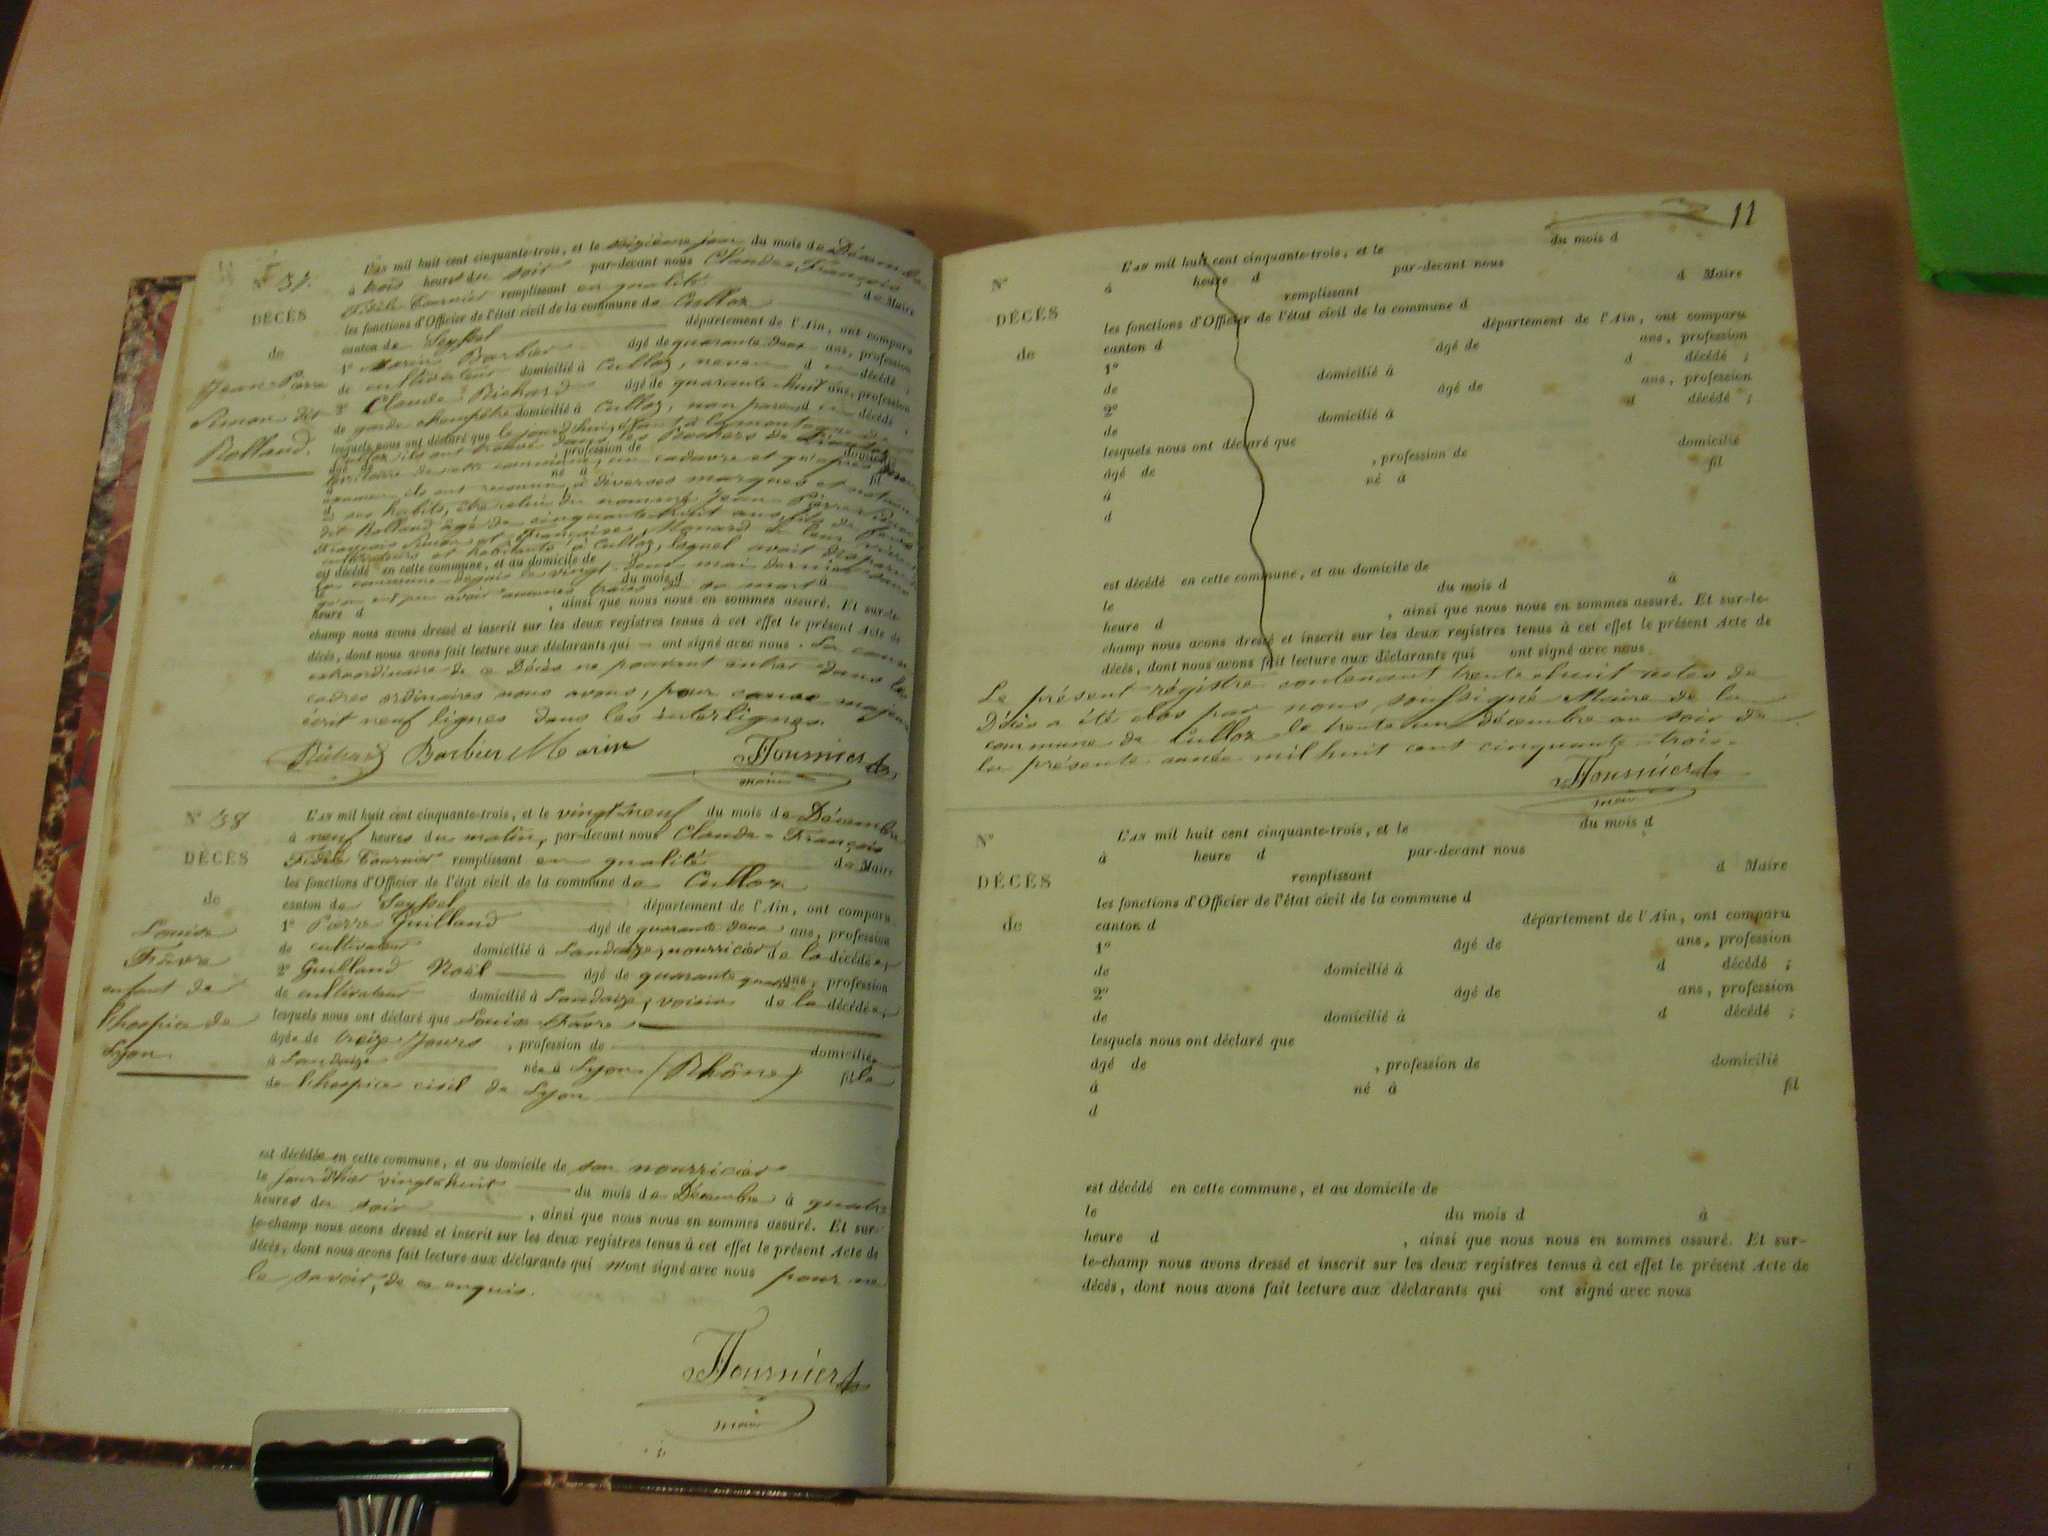 N° 37.
DÉCÈS
de
Jean-Pierre
Simon dit
Rolland.
L'AN mil huit cent cinquante-trois, et le seizième jour du mois de Décembre
à trois heures du soir par-devant nous Claude-François
Fidèle Fournier remplissant en qualité de Maire
les fonctions d'Officier de l'état civil de la commune de Culloz
canton de Seyssel département de l'Ain, ont comparu
1° Marin Barbier âgé de quarante deux ans, profession
de cultivateur domicilié à Culloz, neveu d décédé ;
2° Claude Richard âgé de quarante huit ans, profession
de garde champêtre domicilié à Culloz, non parent d décédé ;
lesquels nous ont déclaré que le jourdhui, étant à la montagne de
Culloz ils ont trouvé dans les Rochers de
âgé de , profession de domicilié
territoire de cette commune, un cadavre et qu'après
à né à fil
examen ils ont reconnu à diverses marques et
d
à ses habits, être celui du nommé Jean-Pierre Simon
dit Rolland âgé de cinquante huit ans, fils de
François Simon et Françoise Monard de leur
cultivateurs et habitants à Culloz, lequel avait disparu
est décédé en cette commune, et au domicile de
la commune depuis le vingt-deux mai dernier
le du mois d à
qu'on ait pu avoir aucunes traces de sa mort
heure d , ainsi que nous nous en sommes assuré. Et sur-le-
champ nous avons dressé et inscrit sur les deux registres tenus à cet effet le présent Acte de
décès, dont nous avons fait lecture aux déclarants qui ont signé avec nous. La cause
extraordinaire de ce Décès ne pouvant entrer dans les
cadres ordinaires nous avons, pour cause majeure
écrit neuf lignes dans les interlignes.
Richard Barbier Marin Fournier
maire
N° 38
DÉCÈS
de
Louise
Favre
enfant de
l'hospice de
Lyon
L'AN mil huit cent cinquante-trois, et le vingt neuf du mois de Décembre
à neuf heures du matin, par-devant nous Claude-François
Fidèle Fournier remplissant en qualité de Maire
les fonctions d'Officier de l'état civil de la commune de Culloz
canton de Seyssel département de l'Ain, ont comparu
1° Pierre Guilland âgé de quarante deux ans, profession
de cultivateur domicilié à Landaize, nourricier de la décédée ;
2° Guilland Noël âgé de quarante quatre ans, profession
de cultivateur domicilié à Landaize, voisin de la décédée ;
lesquels nous ont déclaré que Louise Favre
âgée de treize jours , profession de domiciliée
à Landaize née à Lyon (Rhône) fille
de l'hospice civil de Lyon
est décédée en cette commune, et au domicile de son nourricier
le jourd'hier vingt huit du mois de Décembre à quatre
heures du soir , ainsi que nous nous en sommes assuré. Et sur-
le-champ nous avons dressé et inscrit sur les deux registres tenus à cet effet le présent Acte de
décès, dont nous avons fait lecture aux déclarants qui n'ont signé avec nous pour ne
le savoir, de ce enquis.
Fournier
maire
11
N°
DÉCÈS
de
L'AN mil huit cent cinquante-trois, et le du mois d
à heure d par-devant nous
remplissant d Maire
les fonctions d'Officier de l'état civil de la commune d
canton d département de l'Ain, ont comparu
1° âgé de ans, profession
de domicilié à d décédé ;
2° âgé de ans, profession
de domicilié à d décédé ;
lesquels nous ont déclaré que
âgé de , profession de domicilié
à né à fil
d
est décédé en cette commune, et au domicile de
le du mois d à
heure d , ainsi que nous nous en sommes assuré. Et sur-le-
champ nous avons dressé et inscrit sur les deux registres tenus à cet effet le présent Acte de
décès, dont nous avons fait lecture aux déclarants qui ont signé avec nous
Le présent régistre contenant trente huit actes de
Décès a été clos par nous soussigné Maire de la
commune de Culloz le trente un décembre au soir de
la présente année mil huit cent cinquante-trois.
Fournier
maire
N°
DÉCÈS
de
L'AN mil huit cent cinquante-trois, et le du mois d
à heure d par-devant nous
remplissant d Maire
les fonctions d'Officier de l'état civil de la commune d
canton d département de l'Ain, ont comparu
1° âgé de ans, profession
de domicilié à d décédé ;
2° âgé de ans, profession
de domicilié à d décédé ;
lesquels nous ont déclaré que
âgé de , profession de domicilié
à né à fil
d
est décédé en cette commune, et au domicile de
le du mois d à
heure d , ainsi que nous nous en sommes assuré. Et sur-
le-champ nous avons dressé et inscrit sur les deux registres tenus à cet effet le présent Acte de
décès, dont nous avons fait lecture aux déclarants qui ont signé avec nous